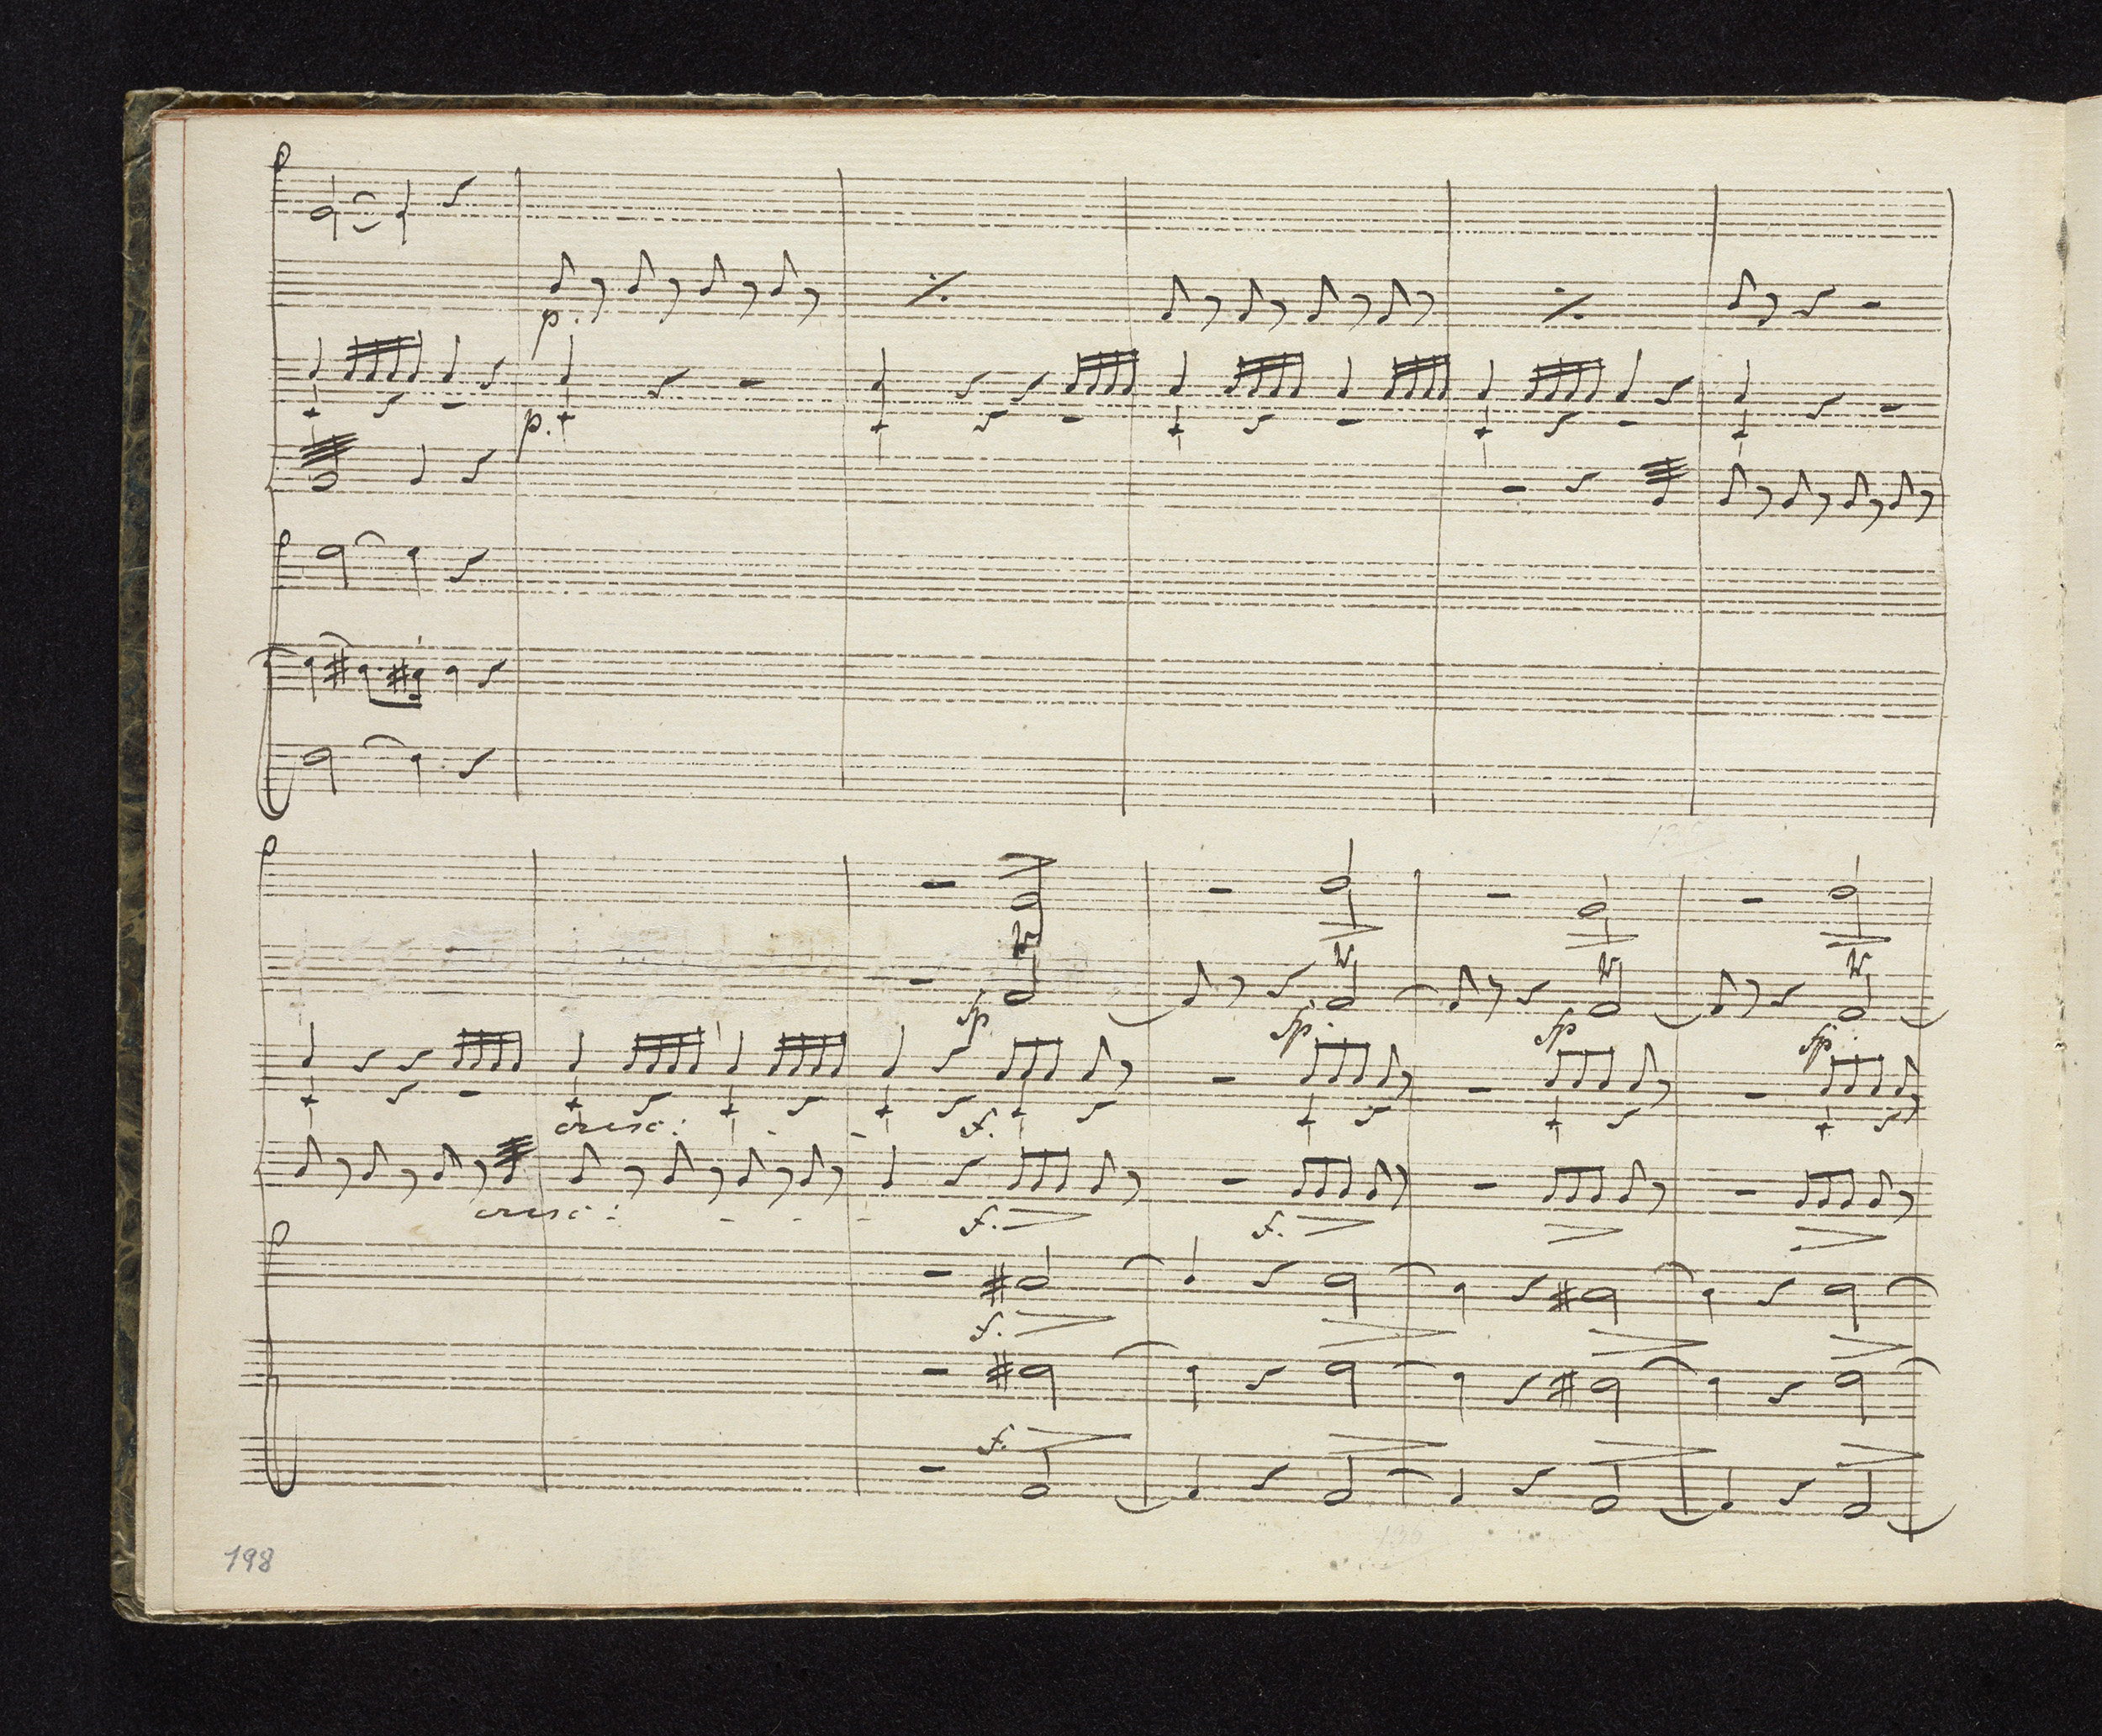 p.
p.
sp sp. sp sp.
cresc: - - f.
cresc: - - - f. f.
f.
f.
136
198